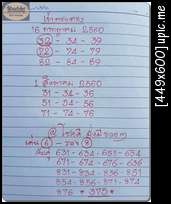 16 กรกฎาคม 2560
32 - 34 - 39
72 - 74 - 79
82 - 84 - 89
1 สิงหาคม 2560
31 - 34 - 36
51 - 54 - 56
71 - 74 - 76
เด่น 6 - รอง 8
631 - 634 - 651 - 654
671 - 674 - 676 - 636
831 - 834 - 836 - 851
854 - 856 - 871 - 874
876 * 375 *
[449x600] upic.me